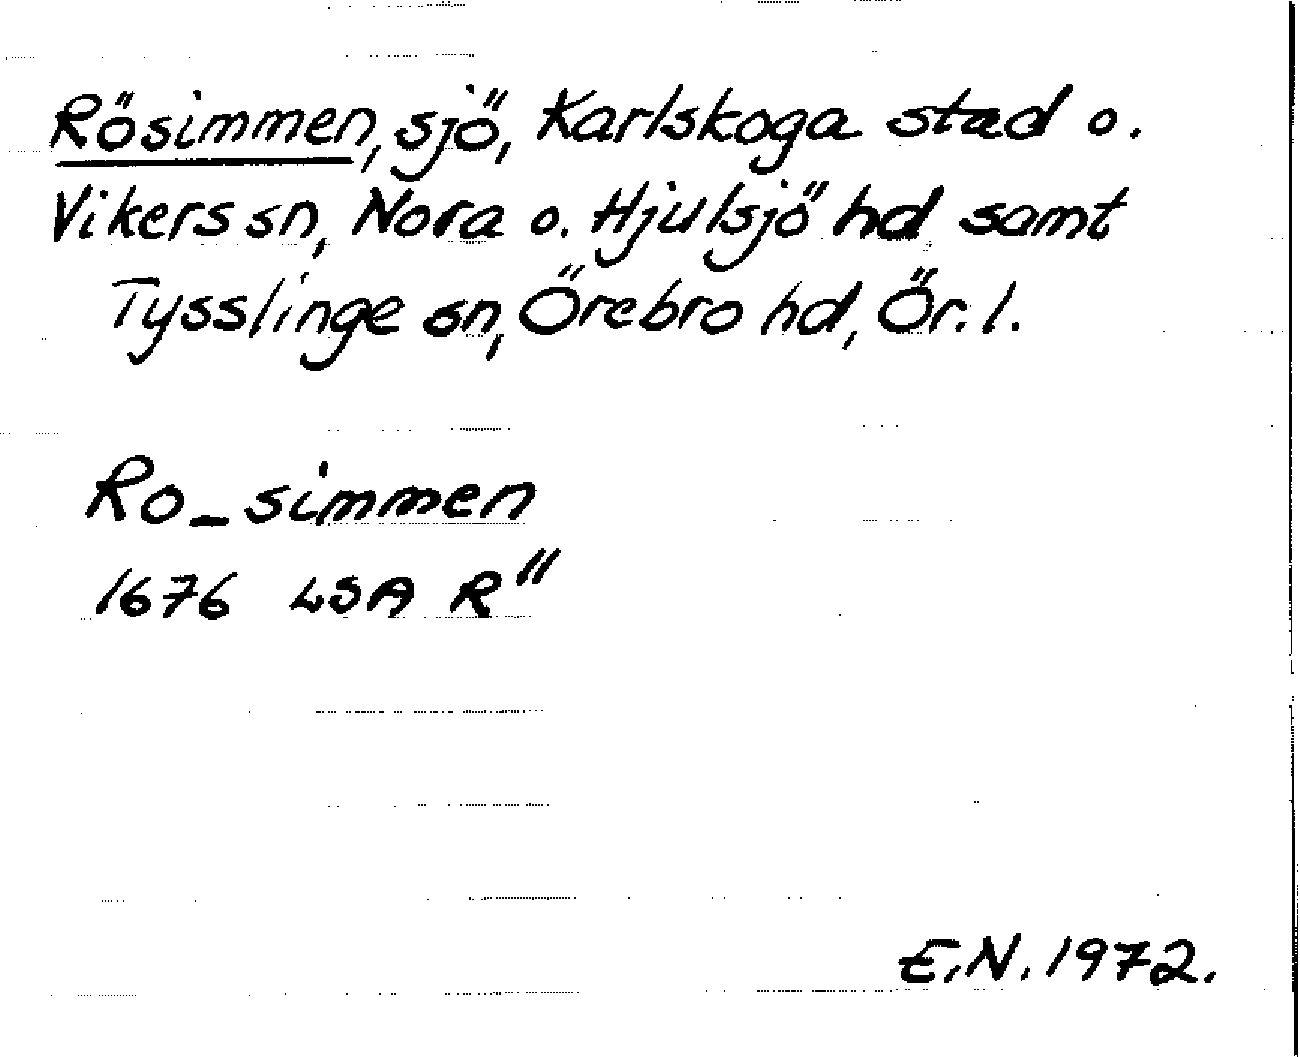 Rösimmen, sjö, Karlskoga stad o.
Vikers sn, Nora o. Hjulsjö hd samt
Tysslinge sn, Örebro hd, Ör. l.
Ro_simmen
1676 LSA R"
E.N. 1972.